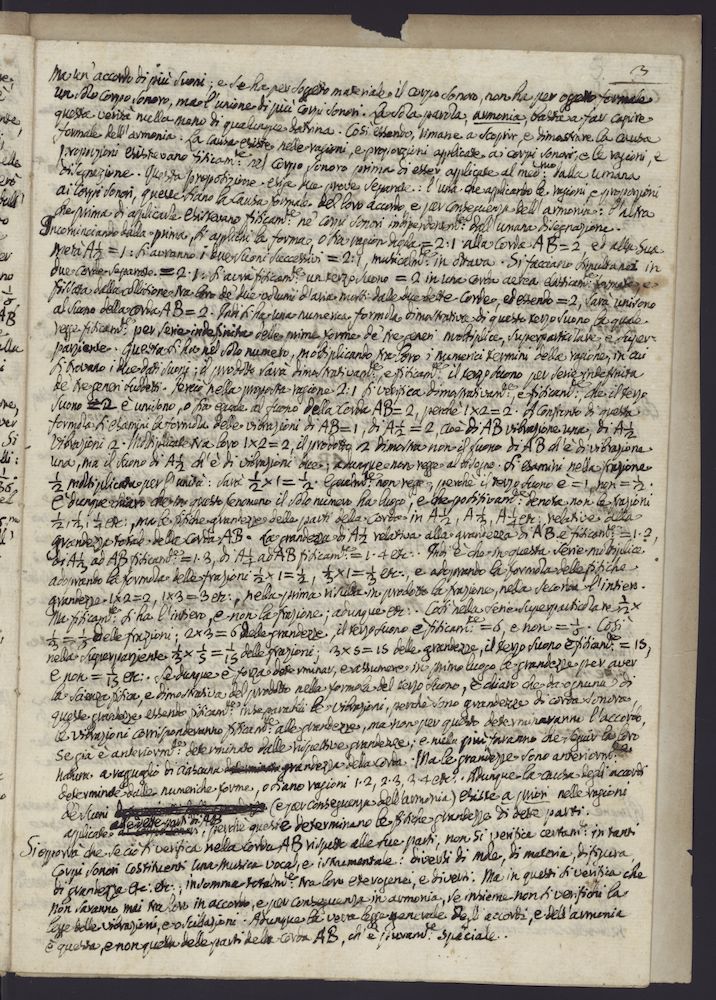 3
Ma un' accordo di più suoni; e se ha per soggetto materiale il corpo sonoro, non ha per oggetto formale
un solo corpo sonoro, ma l'unione di più corpi sonori. La sola parola, armonia, basta a far capire
questa verità nulla meno di qualunque dottrina. Così essendo, rimane a scoprir, e dimostrare la causa
formale dell'armonia. La causa esiste nelle ragioni, e proporzioni applicate a' corpi sonori, e le ragioni, e
proporzioni esistevano fisicam.te ne' corpo sonoro prima di esser applicate al med.mo dalla umana
disegnazione. Questa proposizione esige due prove separate: l'una che applicando le ragioni e proporzioni
ai corpi sonori, queste siano la causa formale del loro accordo, e per conseguenza dell'armonia: l'altra
che prima di applicarle esistevano fisicam.te ne' corpi sonori independentem.te dall'umana disegnazione.
Incominciando dalla prima, si applichi la forma, o sia ragion dupla = 2:1 alla corda AB = 2 e alla sua
metà A½ = 1. Si avranno i due suoni successivi = 2:1, musicalm.te in ottava. Si facciano simultanei in
due corde separate = 2:1. Si avrà fisicam.te un terzo suono = 2 in una corda aerea
dalla collisione tra loro de' due volumi d'aria mossi dalle due dette corde, ed essendo = 2, sarà unisono
al suono della corda AB = 2. Di ciò si ha una numerica formola dimostrativa di questo terzo suono la quale
regge fisicam.te per serie indefinita delle prime forme de' tre generi moltiplice, superparticolare, e super-
parziente. Questa si ha nel solo numero, moltiplicando tra loro i numerici termini delle ragioni, in cui
si trovano i due dati suoni: il prodotto sarà dimostrativam.te, e fisicam.te il terzo suono per serie indefinita
de' tre generi suddetti. Perciò nella proposta ragione 2:1 si verifica dimostrativam.te, e fisicam.te che il terzo
suono = 2 è unisono, o sia eguale al suono della corda AB = 2, perchè 1×2 = 2. A confronto di questa
formola si esamini la formola delle vibrazioni di AB = 1, di A½ = 2, cioè di AB vibrazione una, di A½
vibrazioni 2. Moltiplicate tra loro 1×2 = 2, il prodotto 2 dimostra non il suono di AB ch'è di vibrazione
una, ma il suono di A½ ch'è di vibrazioni due; adunque non regge al bisogno. Si esamini nella frazione
½ moltiplicata per l'unità: sarà ½ × 1 = ½. Egualm.te non regge, perchè il terzo suono è = 1, non = ½.
È dunque chiaro che in questo fenomeno il solo numero ha luogo, e che fisicam.te denota non le ragioni
½, ⅓, ¼ etc., ma le fisiche grandezze delle parti della corda in A½, A⅓, A¼ etc. relative alla
grandezza totale della corda AB. La grandezza di A½ relativa alla grandezza di AB è fisicam.te = 1·2,
di A⅓ ad AB fisicam.te = 1·3, di A¼ ad AB fisicam.te = 1·4 etc. Indi è che in questa serie moltiplice
adoprando la formola delle frazioni ½ × 1 = ½, ⅓ × 1 = ⅓ etc., e adoprando la formola delle fisiche
grandezze 1×2 = 2, 1×3 = 3 etc., nella prima risulta in prodotto la frazione, nella seconda l'intiero.
Ma fisicam.te si ha l'intiero, e non la frazione; adunque etc. Così nella serie superparticolare ½ ×
⅓ = ⅙ delle frazioni; 2×3 = 6 delle grandezze, il terzo suono è fisicam.te = 6, e non = ⅙. Così
nella superparziente ⅓ × ⅕ = 1/15 delle frazioni; 3×5 = 15 delle grandezze, il terzo suono è fisicam.te = 15,
e non = 1/15 etc. Se dunque è forza determinar, e assumere in primo luogo la grandezza per aver
la scienza fisica, e dimostrativa del prodotto nella formola del terzo suono, è chiaro che da ognuna di
queste grandezze essendo fisicam.te inseparabili le vibrazioni, perchè sono grandezze di corda sonora
le vibrazioni corrisponderanno fisicam.te alle grandezze, ma non per questo determineranno l'accordo,
se già è anteriorm.te determinato dalle rispettive grandezze; e nulla più faranno che seguir la loro
natura a ragguaglio di ciascuna grandezza della corda. Ma le grandezze sono anteriorm.te
determinate dalle numeriche forme, o siano ragioni 1·2, 2·3, 3·4 etc. Adunque la causa degli accordi
de' suoni (e per conseguenza dell'armonia) esiste a priori nelle ragioni
applicate alle dette parti di AB, perchè queste determinano le fisiche grandezze di dette parti.
Si opporrà che se ciò si verifica nella corda AB rispetto alle sue parti, non si verifica certam.te in tanti
corpi sonori costituenti una musica vocal, e istrumentale: diversi di mole, di materia, di figura
di grandezza etc. etc.; insomma totalm.te tra loro eterogenei, e diversi. Ma in questi si verifica che
non saranno mai tra loro in accordo, e per conseguenza in armonia, se insieme non si verifichi la
legge delle vibrazioni, e oscillazioni. Adunque la vera legge generale degl'accordi, e dell'armonia
è questa, e non quella delle parti della corda AB, ch'è puram.te speciale.